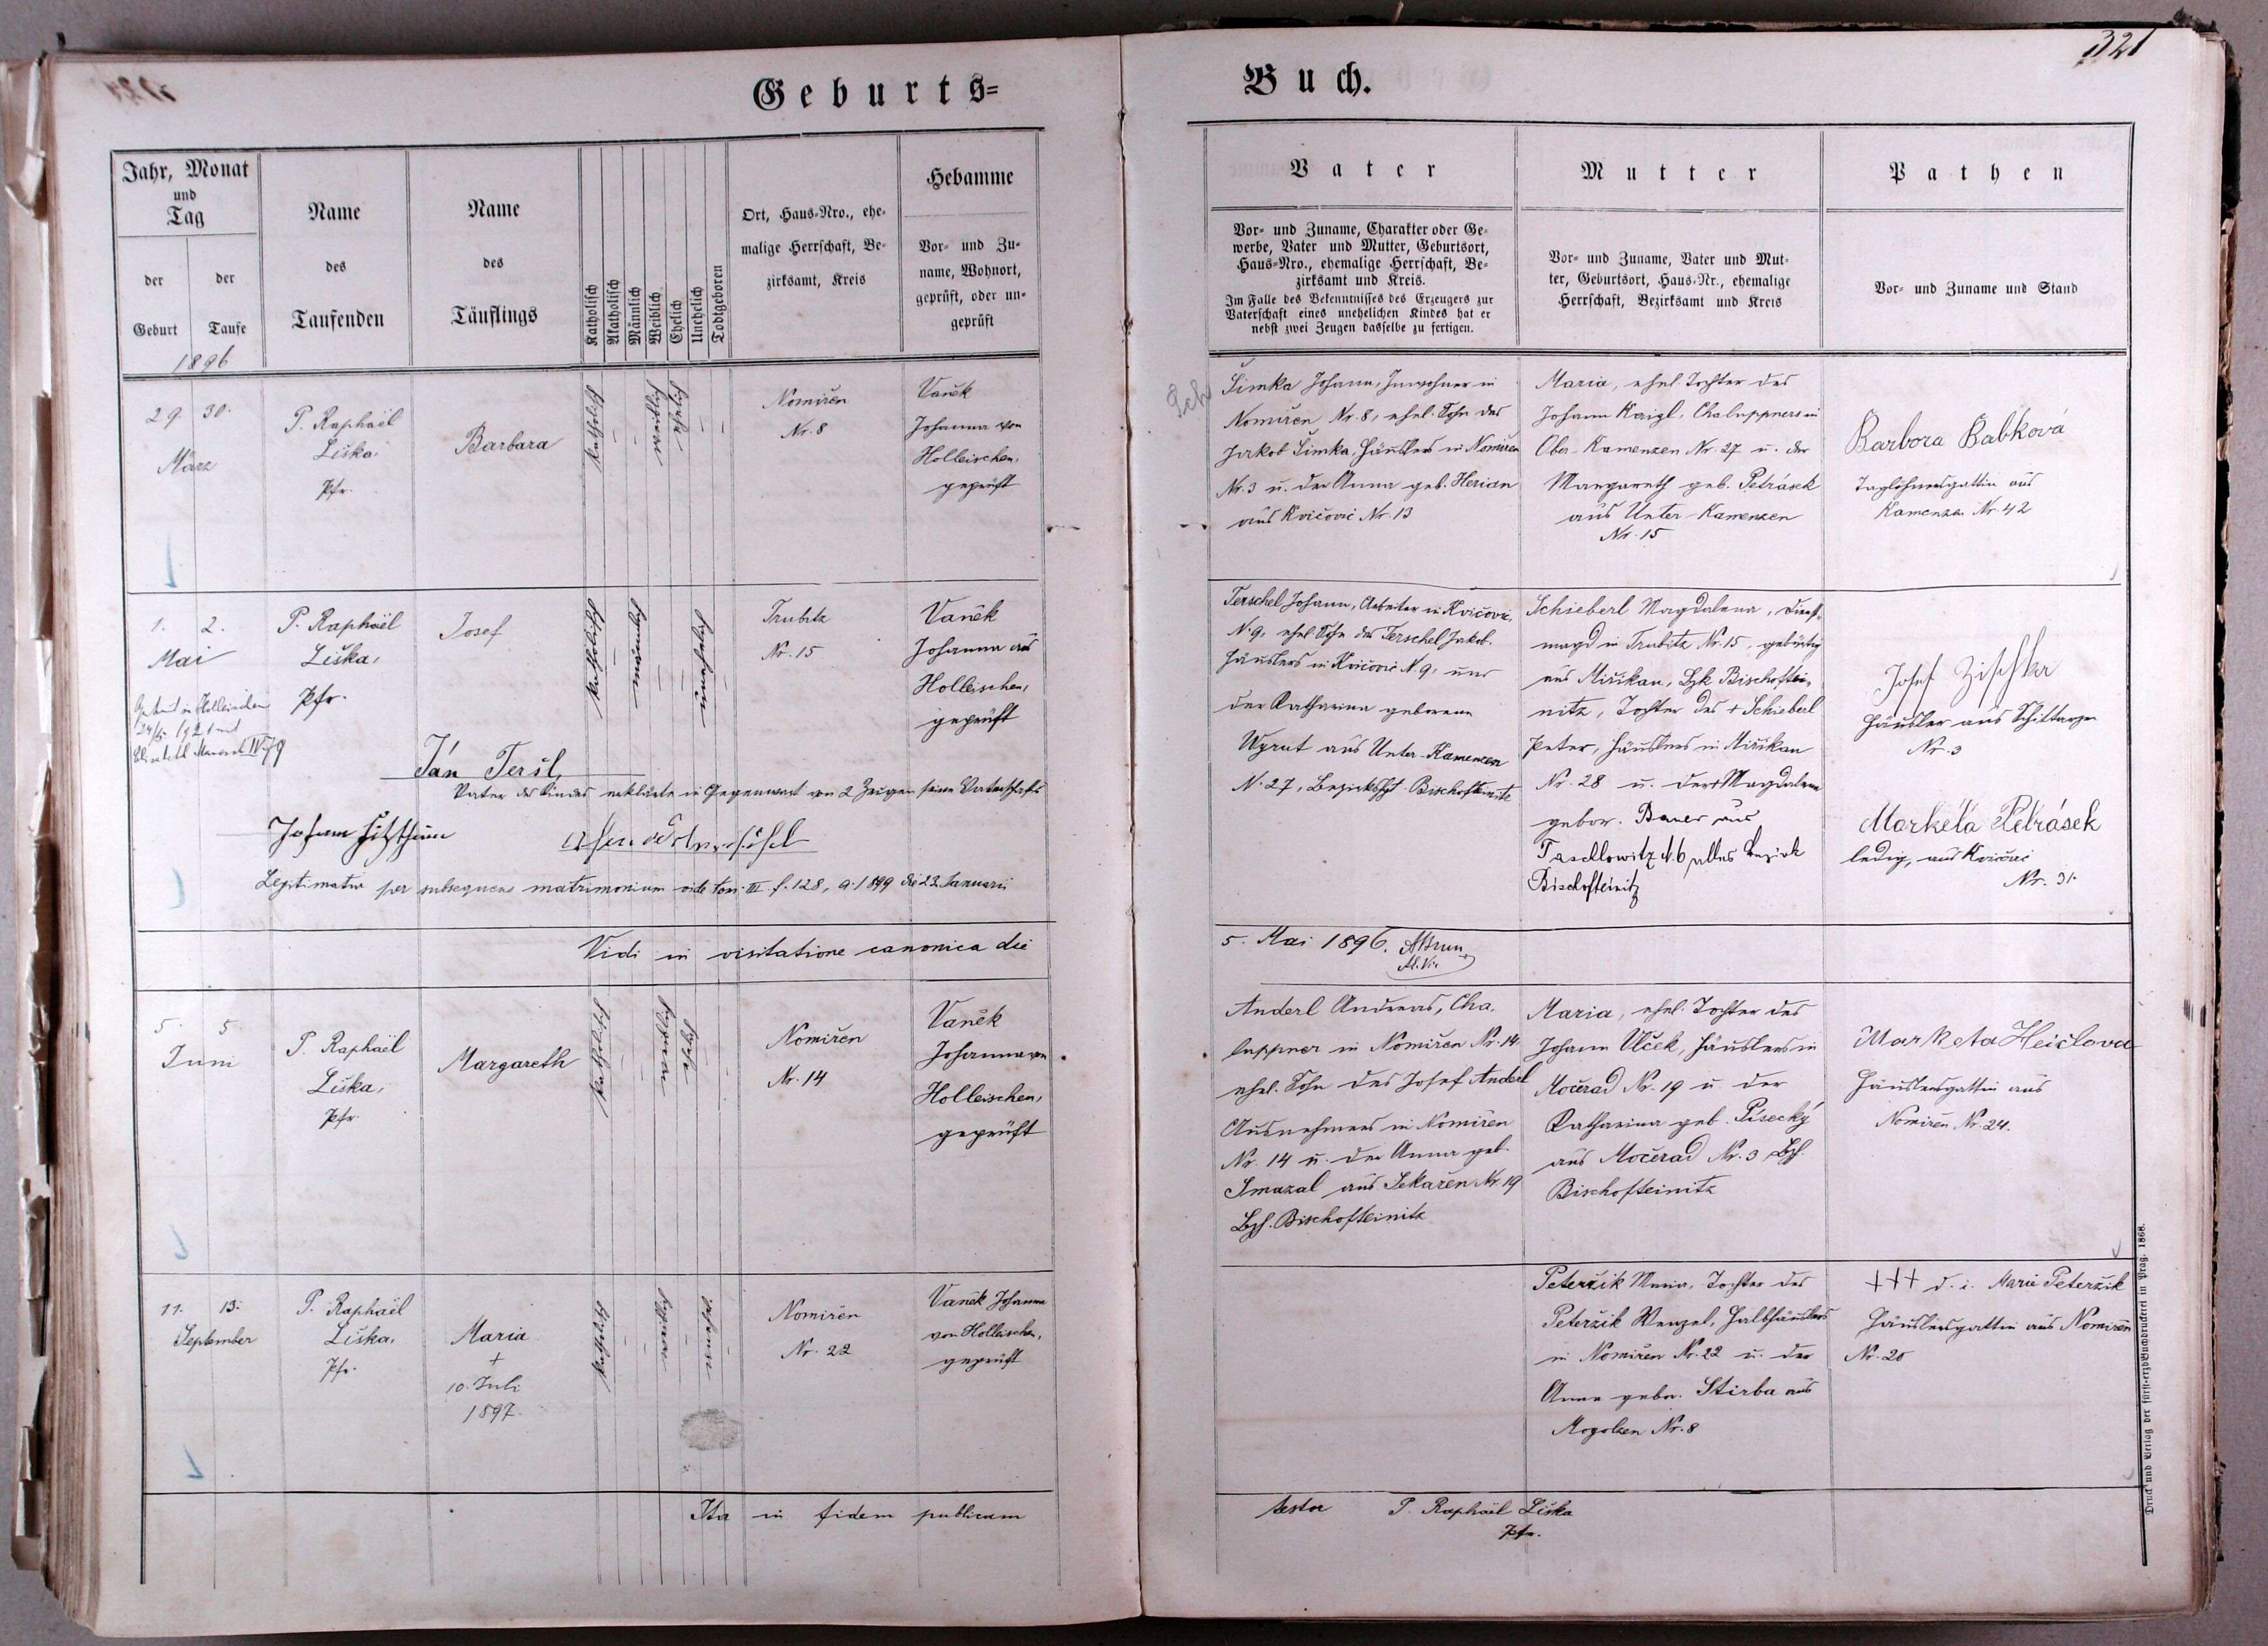 321
Geburts=
Buch.
Jahr, Monat
und
Tag
der
Geburt
der
Taufe
1896
Name
des
Taufenden
Name
des
Täuflings
Katholisch
Akatholisch
Männlich
Weiblich
Ehelich
Unehelich
Todtgeboren
Ort, Haus-Nro., ehe-
malige Herrschaft, Be-
zirksamt, Kreis
Hebamme
Vor- und Zu-
name, Wohnort,
geprüft, oder un-
geprüft
Vater
Vor- und Zuname, Charakter oder Ge-
werbe, Vater und Mutter, Geburtsort,
Haus-Nro., ehemalige Herrschaft, Be-
zirksamt und Kreis.
Im Falle des Bekenntnisses des Erzeugers zur
Vaterschaft eines unehelichen Kindes hat er
nebst zwei Zeugen dasselbe zu fertigen.
Mutter
Vor- und Zuname, Vater und Mut-
ter, Geburtsort, Haus-Nr., ehemalige
Herrschaft, Bezirksamt und Kreis
Pathen
Vor- und Zuname und Stand
29. 30.
März
P. Raphaël
Liška,
Pfr.
Barbara
Katholisch
Ehelich
Nomiřen
Nr. 8
Vaněk
Johanna von
Holleischen,
geprüft
Sch
Šimka Johann, Inwohner in
Nomiřen Nr. 8, ehel. Sohn des
Jakob Šimka, Häuslers in Nomiřen
Nr. 3 u. der Anna geb. Herian
aus Kvičovic Nr. 13
Maria, ehel. Tochter des
Johann Kaigl, Chaluppners in
Ober-Kamenzen Nr. 27 u. der
Margareth geb. Petrásek
aus Unter-Kamenzen
Nr. 15
Barbora Babková
Taglöhnersgattin aus
Kamenzen Nr. 42
1. 2.
Mai
P. Raphaël
Liška,
Pfr.
Josef
Katholisch
Trubitz
Nr. 15
Vaněk
Johanna aus
Holleischen,
geprüft
Getraut in Holleischen
Jan Teršl,
Vater des Kindes erklärte in Gegenwart von 2 Zeugen seine Vaterschaft
Legitimatus per subsequens matrimonium vide tom. III f. 128, a. 1899 die 23. Januarii
Terschel Johann, Arbeiter in Kvičovic,
N. 9, ehel. Sohn des Terschel Jakob,
Häuslers in Kvičovic N. 9, und
der Katharina geborene
Wyrut aus Unter-Kamenzen
N. 27, Bezirkshpt. Bischofteinitz
Schieberl Magdalena, Dienst-
magd in Trubitz Nr. 15, gebürtig
aus Miřikau, Bzk Bischoftei-
nitz, Tochter des + Schieberl
Peter, Häuslers in Miřikau
Nr. 28 u. der + Magdalena
gebor. Bauer aus
Taschlowitz N. 6 alles Bezirk
Bischofteinitz
Josef Zischka
Häusler aus Schittarzen
Nr. 3
Markéta Petrásek
ledig, aus Kvičovic
Nr. 31
Vidi in visitatione canonica die
5. Mai 1896.
5. 5
Juni
P. Raphaël
Liška,
Pfr.
Margareth
Katholisch
Ehelich
Nomiřen
Nr. 14
Vaněk
Johanna von
Holleischen,
geprüft
Anderl Andreas, Cha-
luppner in Nomiřen Nr. 14,
ehel. Sohn des Josef Anderl
Ausnehmers in Nomiřen
Nr. 14 u. der Anna geb.
Smazal aus Sekařen Nr. 19
Bzh. Bischofteinitz
Maria, ehel. Tochter des
Johann Vlček, Häuslers in
Močerad Nr. 19 u. der
Katharina geb. Písecký
aus Močerad Nr. 3 Bzh.
Bischofteinitz
Marketa Heislova
Häuslersgattin aus
Nomiřen Nr. 24.
11. 13.
September
P. Raphaël
Liška,
Pfr.
Maria
+
10. Juli
1897.
Katholisch
Nomiřen
Nr. 22
Vaněk Johanna
von Holleischen,
geprüft
Peteržik Maria, Tochter des
Peteržik Wenzel, Halbhäuslers
in Nomiřen Nr. 22 u. der
Anna gebor. Stirba aus
Mogolzen Nr. 8
+++ d. i. Marie Peteržik
Häuslersgattin aus Nomiřen
Nr. 20
Ita in fidem publicam
testor P. Raphaël Liška
Pfr.
Druck und Verlag der fürst-erzb. Buchdruckerei in Prag. 1868.